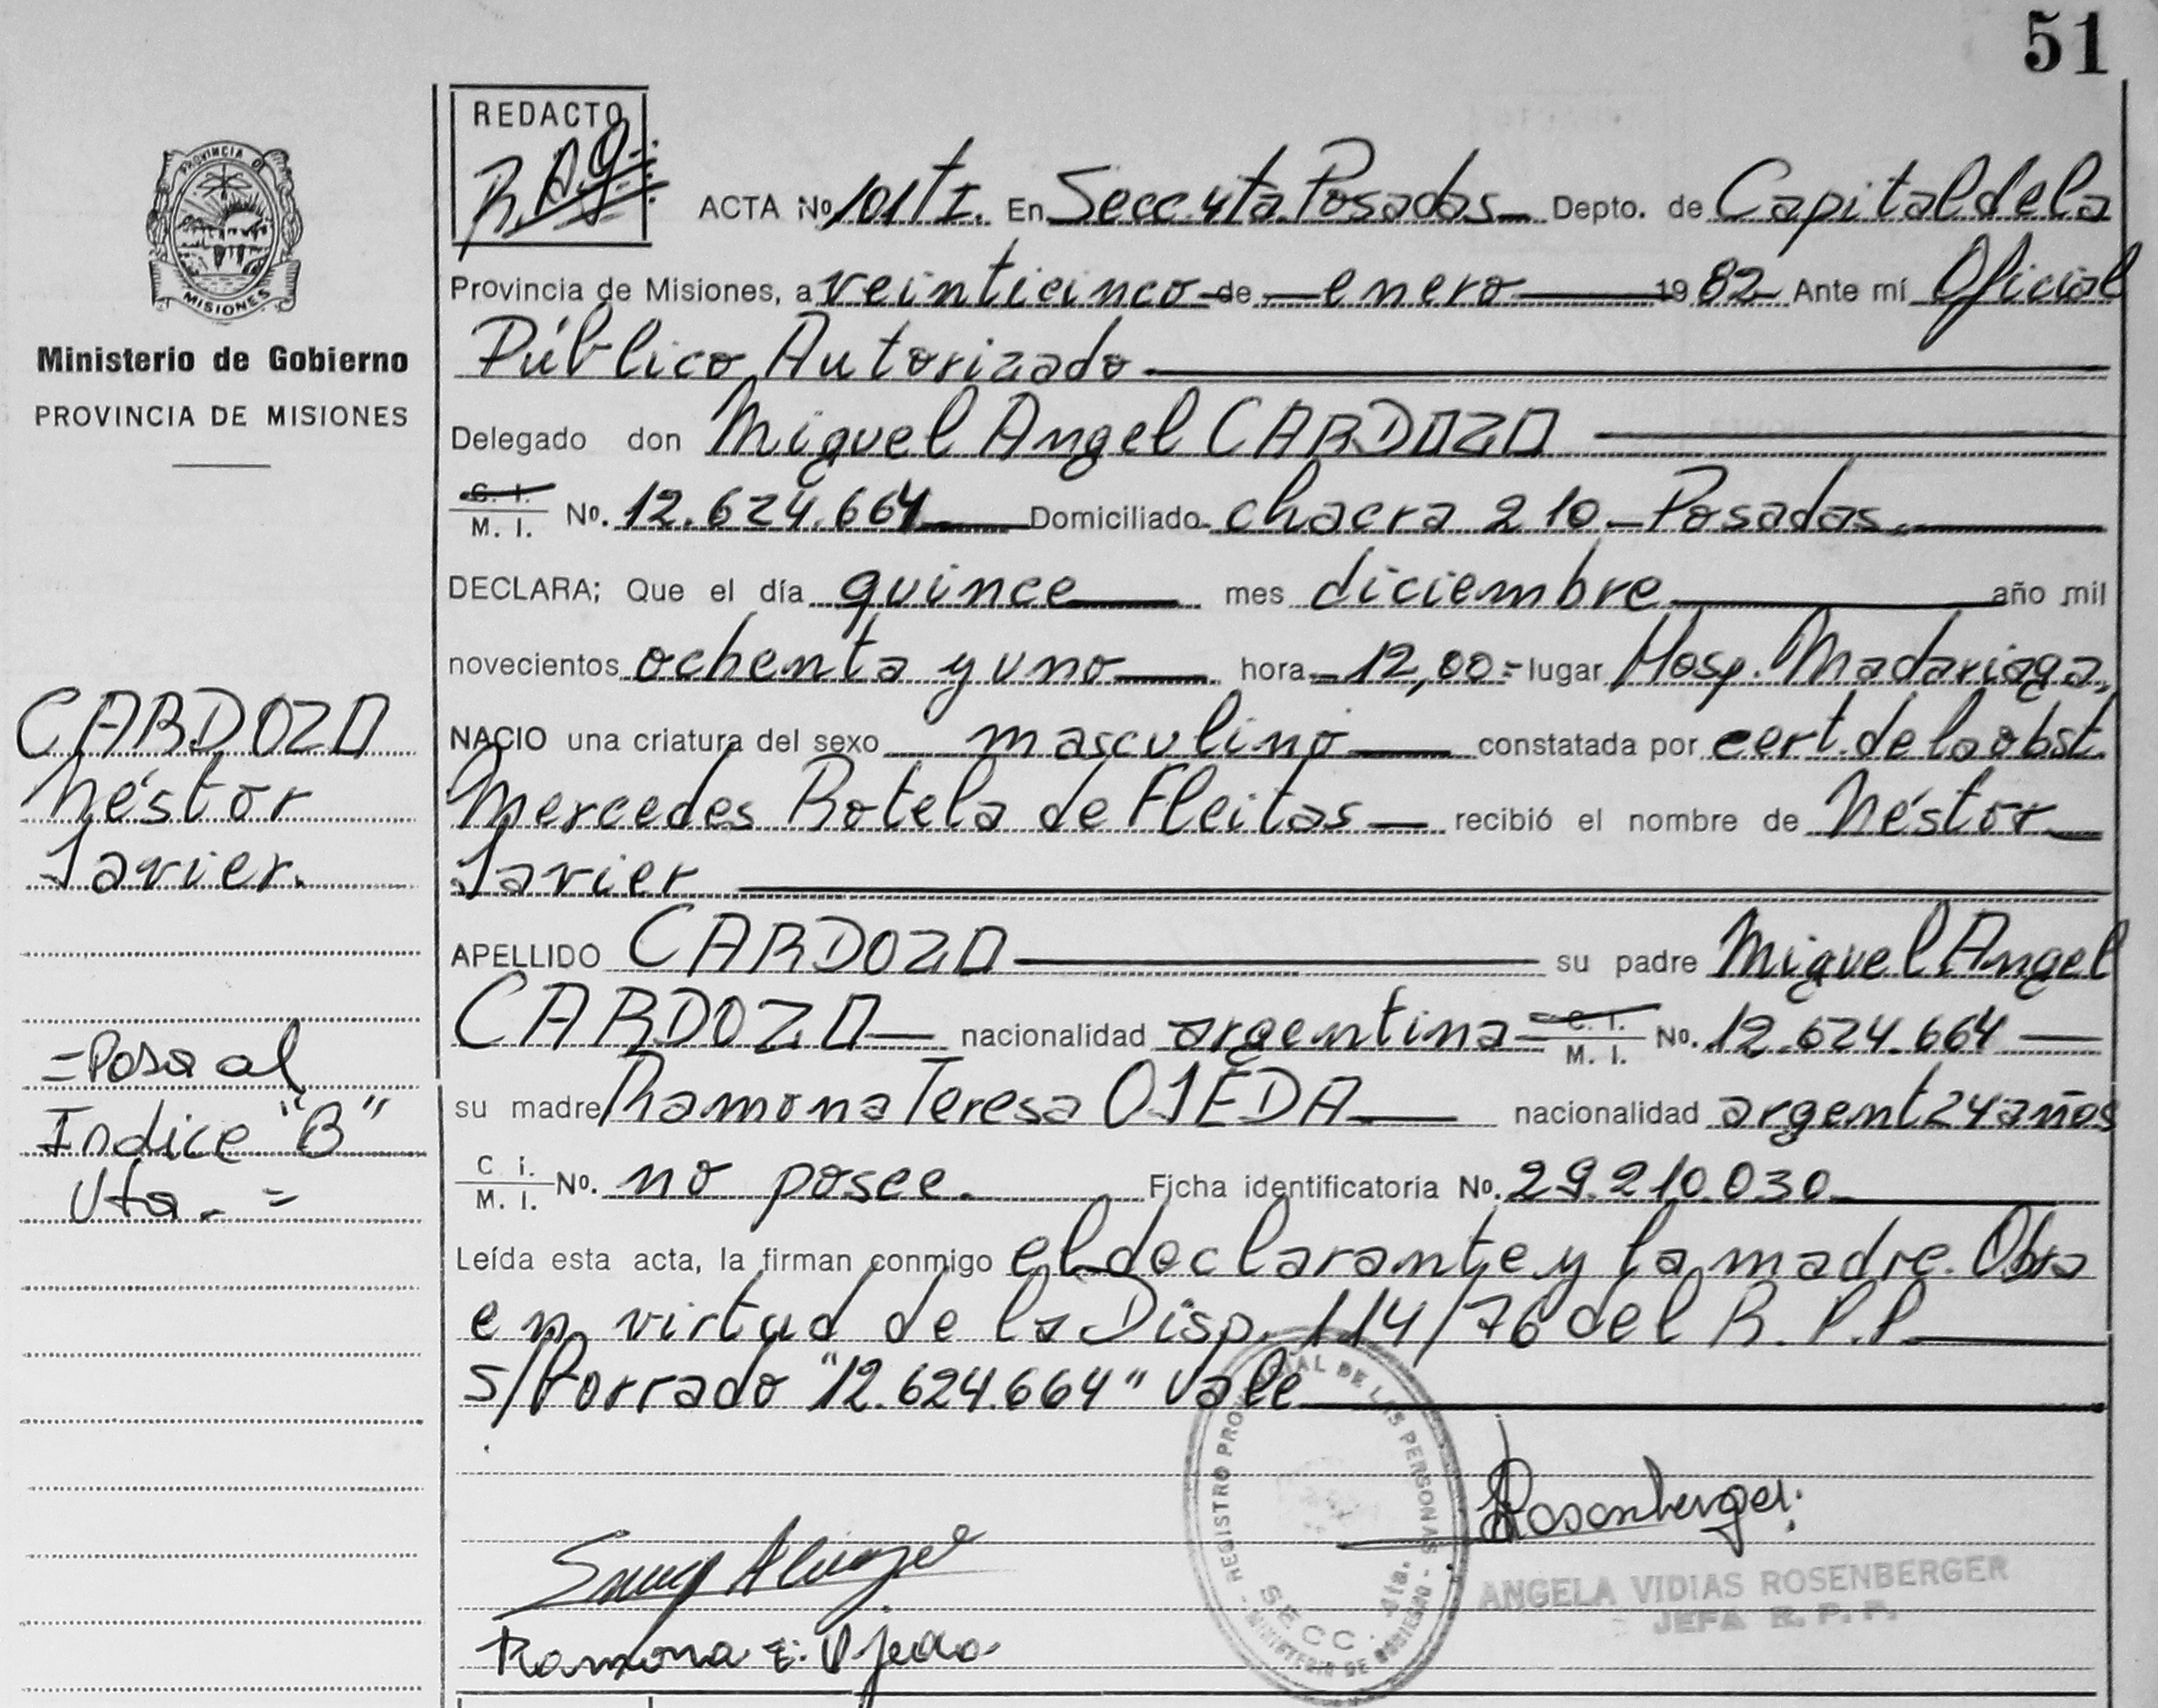 51
PROVINCIA DE
MISIONES
Ministerio de Gobierno
PROVINCIA DE MISIONES
CARDOZO
Néstor
Javier.
=Pasa al
Indice "B"
Uta. =
REDACTO
R.A.G.
ACTA No 101 TI. En Secc. 4ta. Posadas Depto. de Capital de la
Provincia de Misiones, a veinticinco de enero 1982 Ante mí Oficial
Público Autorizado
Delegado don Miguel Angel CARDOZO
C. I. / M. I. No. 12.624.664 Domiciliado chacra 210 - Posadas.
DECLARA; Que el día quince mes diciembre año mil
novecientos ochenta y uno hora 12,00= lugar Hosp. Madariaga,
NACIO una criatura del sexo masculino constatada por cert. de la obst.
Mercedes Rotela de Fleitas recibió el nombre de Néstor
Javier
APELLIDO CARDOZO su padre Miguel Angel
CARDOZO nacionalidad argentina C. I. / M. I. No. 12.624.664
su madre Ramona Teresa OJEDA nacionalidad argent 24 años
C. I. / M. I. No. no posee. Ficha identificatoria No. 29.210.030
Leída esta acta, la firman conmigo el declarante y la madre. Obra
en virtud de la Disp. 114/76 del R.P.P.
s/borrado "12.624.664" Vale
REGISTRO PROVINCIAL DE LAS PERSONAS
SECC. 4ta.
MINISTERIO DE GOBIERNO
Rosenberger
ANGELA VIDIAS ROSENBERGER
JEFA R. P. P.
Ramona T. Ojeda